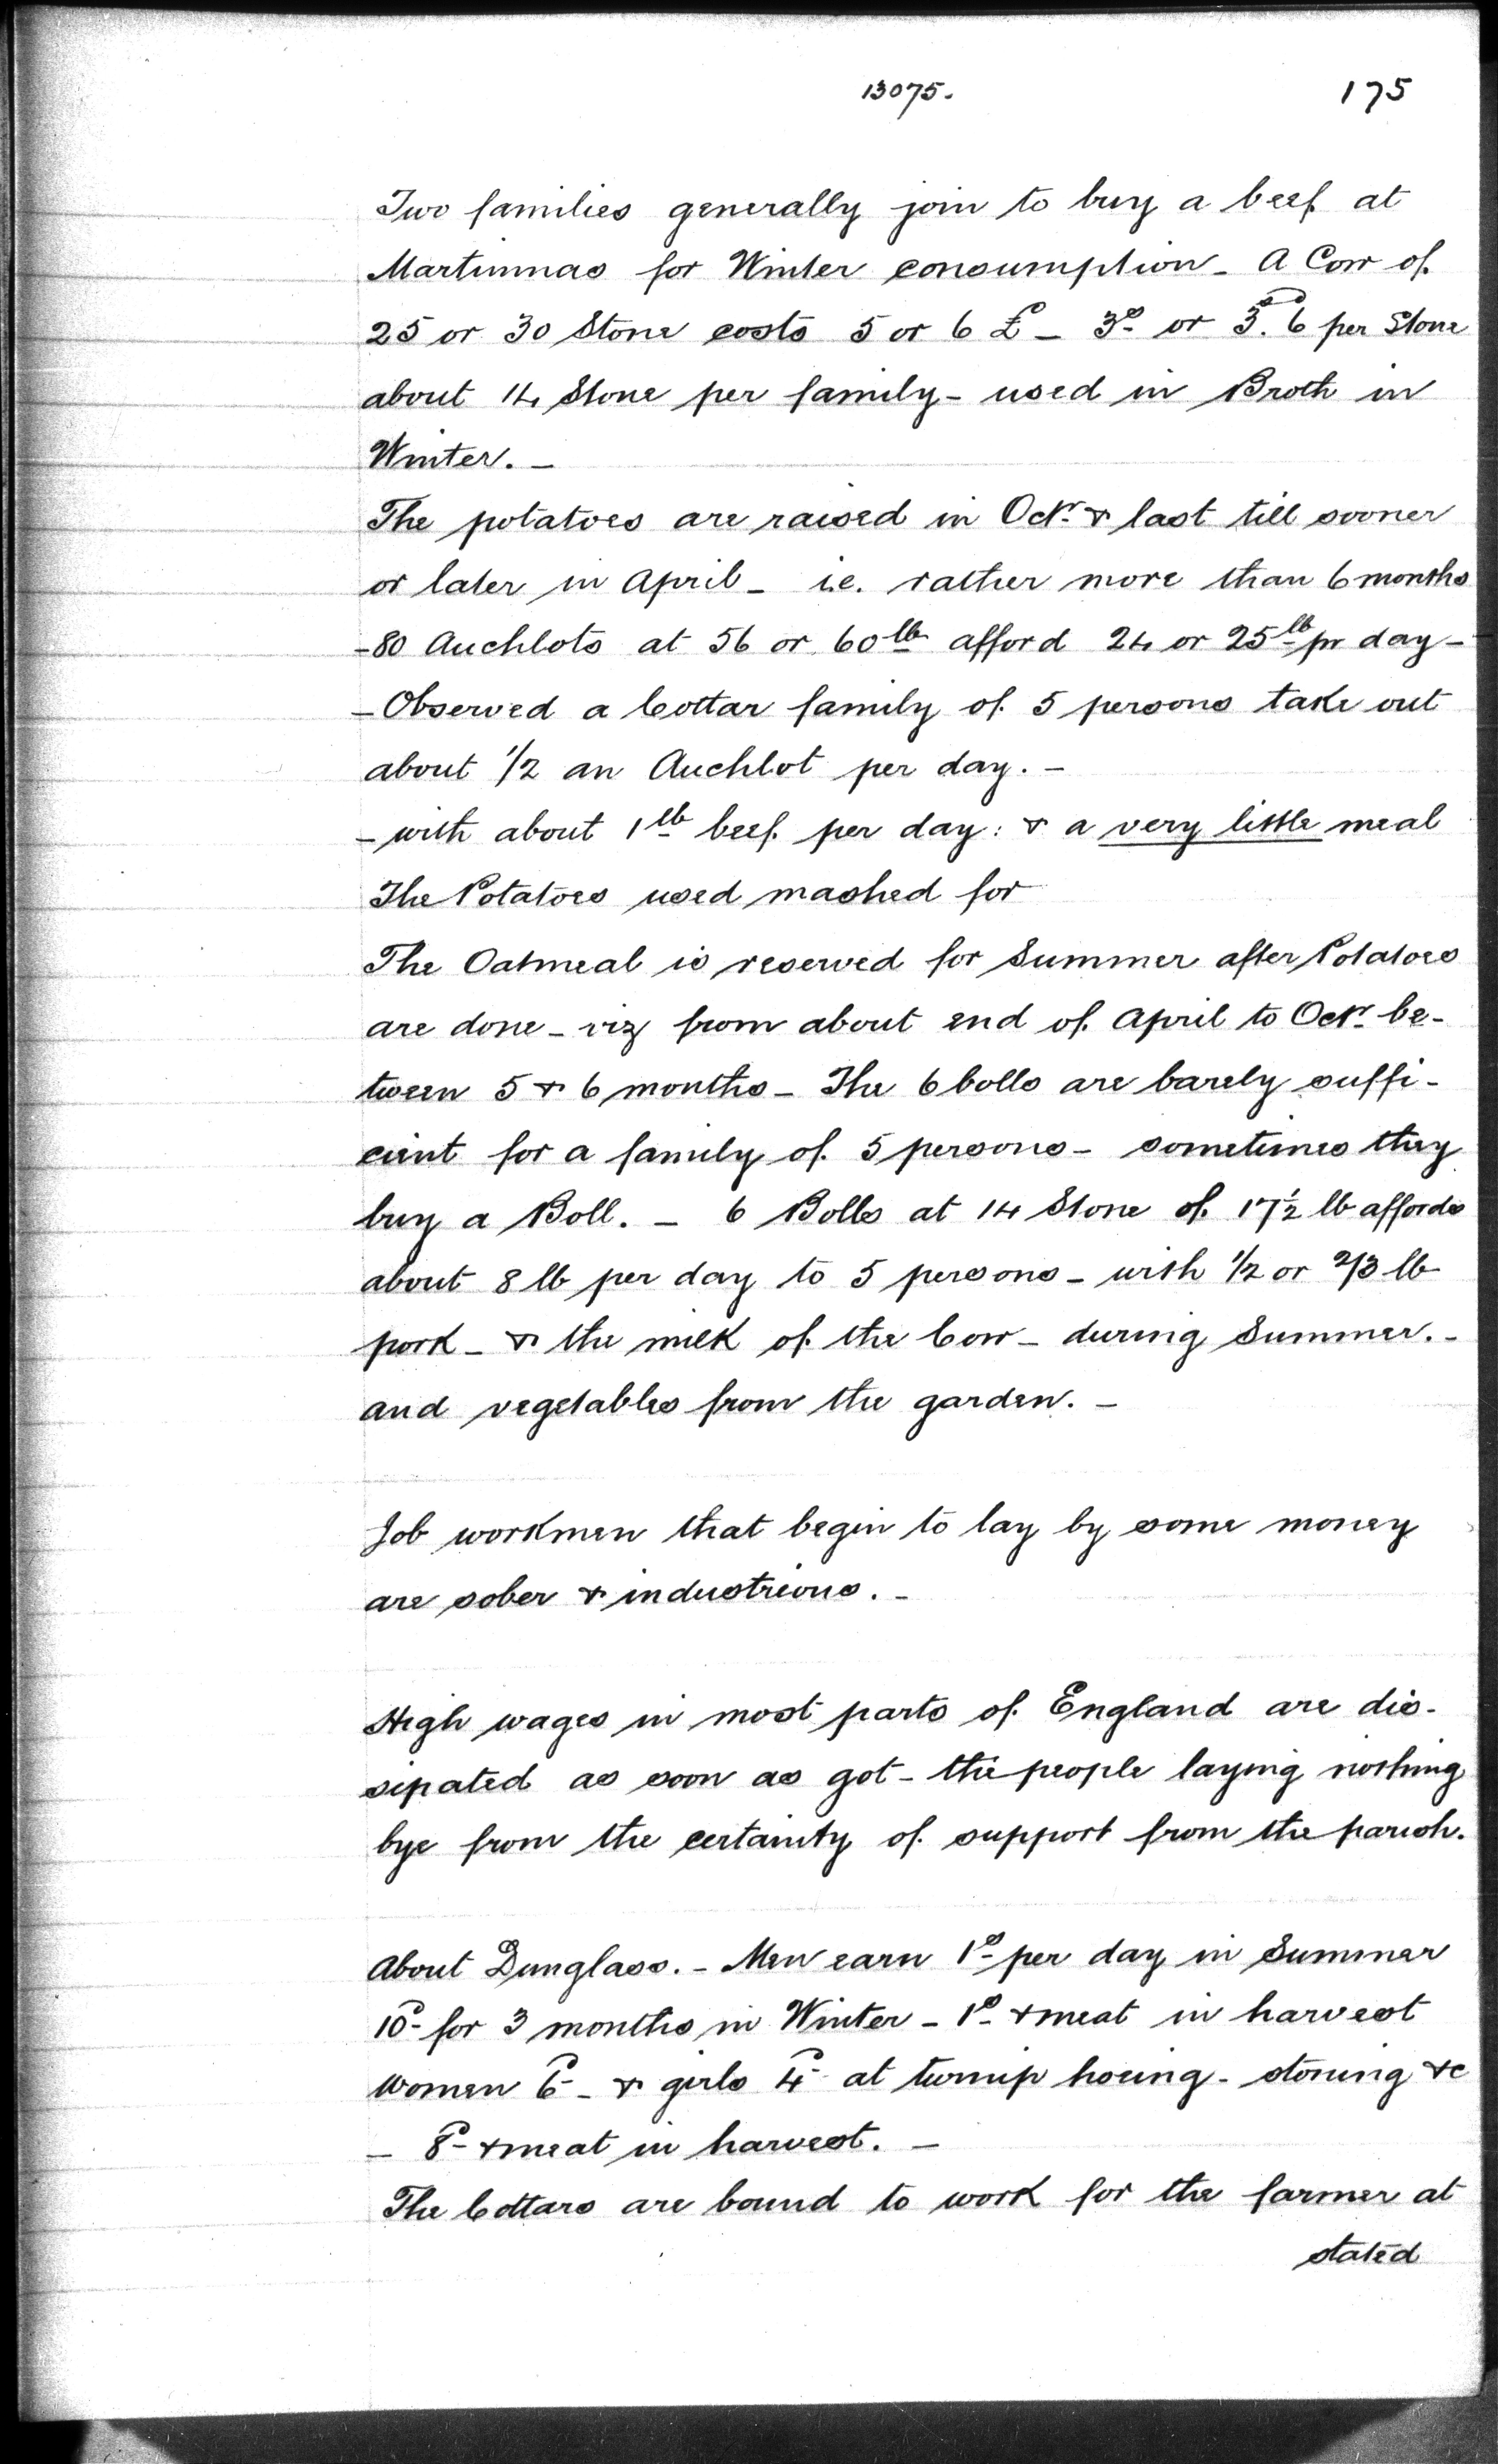 13075. 175
Two families generally join to buy a beef at
Martinmas for Winter consumption - A Cow of
25 or 30 Stone costs 5 or 6 £ - 3s or 3s. 6d per Stone
about 14 Stone per family - used in Broth in
Winter. -
The potatoes are raised in Octr & last till sooner
or later in April - i.e. rather more than 6 months
- 80 Auchlots at 56 or 60 lb afford 24 or 25 lb pr day -
- Observed a Cottar family of 5 persons take out
about 1/2 an Auchlot per day. -
- with about 1 lb beef per day : & a very little meal
The Potatoes used mashed for
The Oatmeal is reserved for Summer after Potatoes
are done - viz from about end of April to Octr be-
tween 5 & 6 months - The 6 bolls are barely suffi-
cient for a family of 5 persons - sometimes they
buy a Boll. - 6 Bolls at 14 Stone of 17 1/2 lb affords
about 8 lb per day to 5 persons - with 1/2 or 2/3 lb
pork - & the milk of the Cow - during Summer. -
and vegetables from the garden. -
Job workmen that begin to lay by some money
are sober & industrious. -
High wages in most parts of England are dis-
sipated as soon as got - the people laying nothing
bye from the certainty of support from the parish.
About Dunglass. - Men earn 1s per day in Summer
10d for 3 months in Winter - 1s & meat in harvest
women 6d - & girls 4d at turnip hoeing - stoning &c
- 8d & meat in harvest. -
The Cottars are bound to work for the farmer at
stated